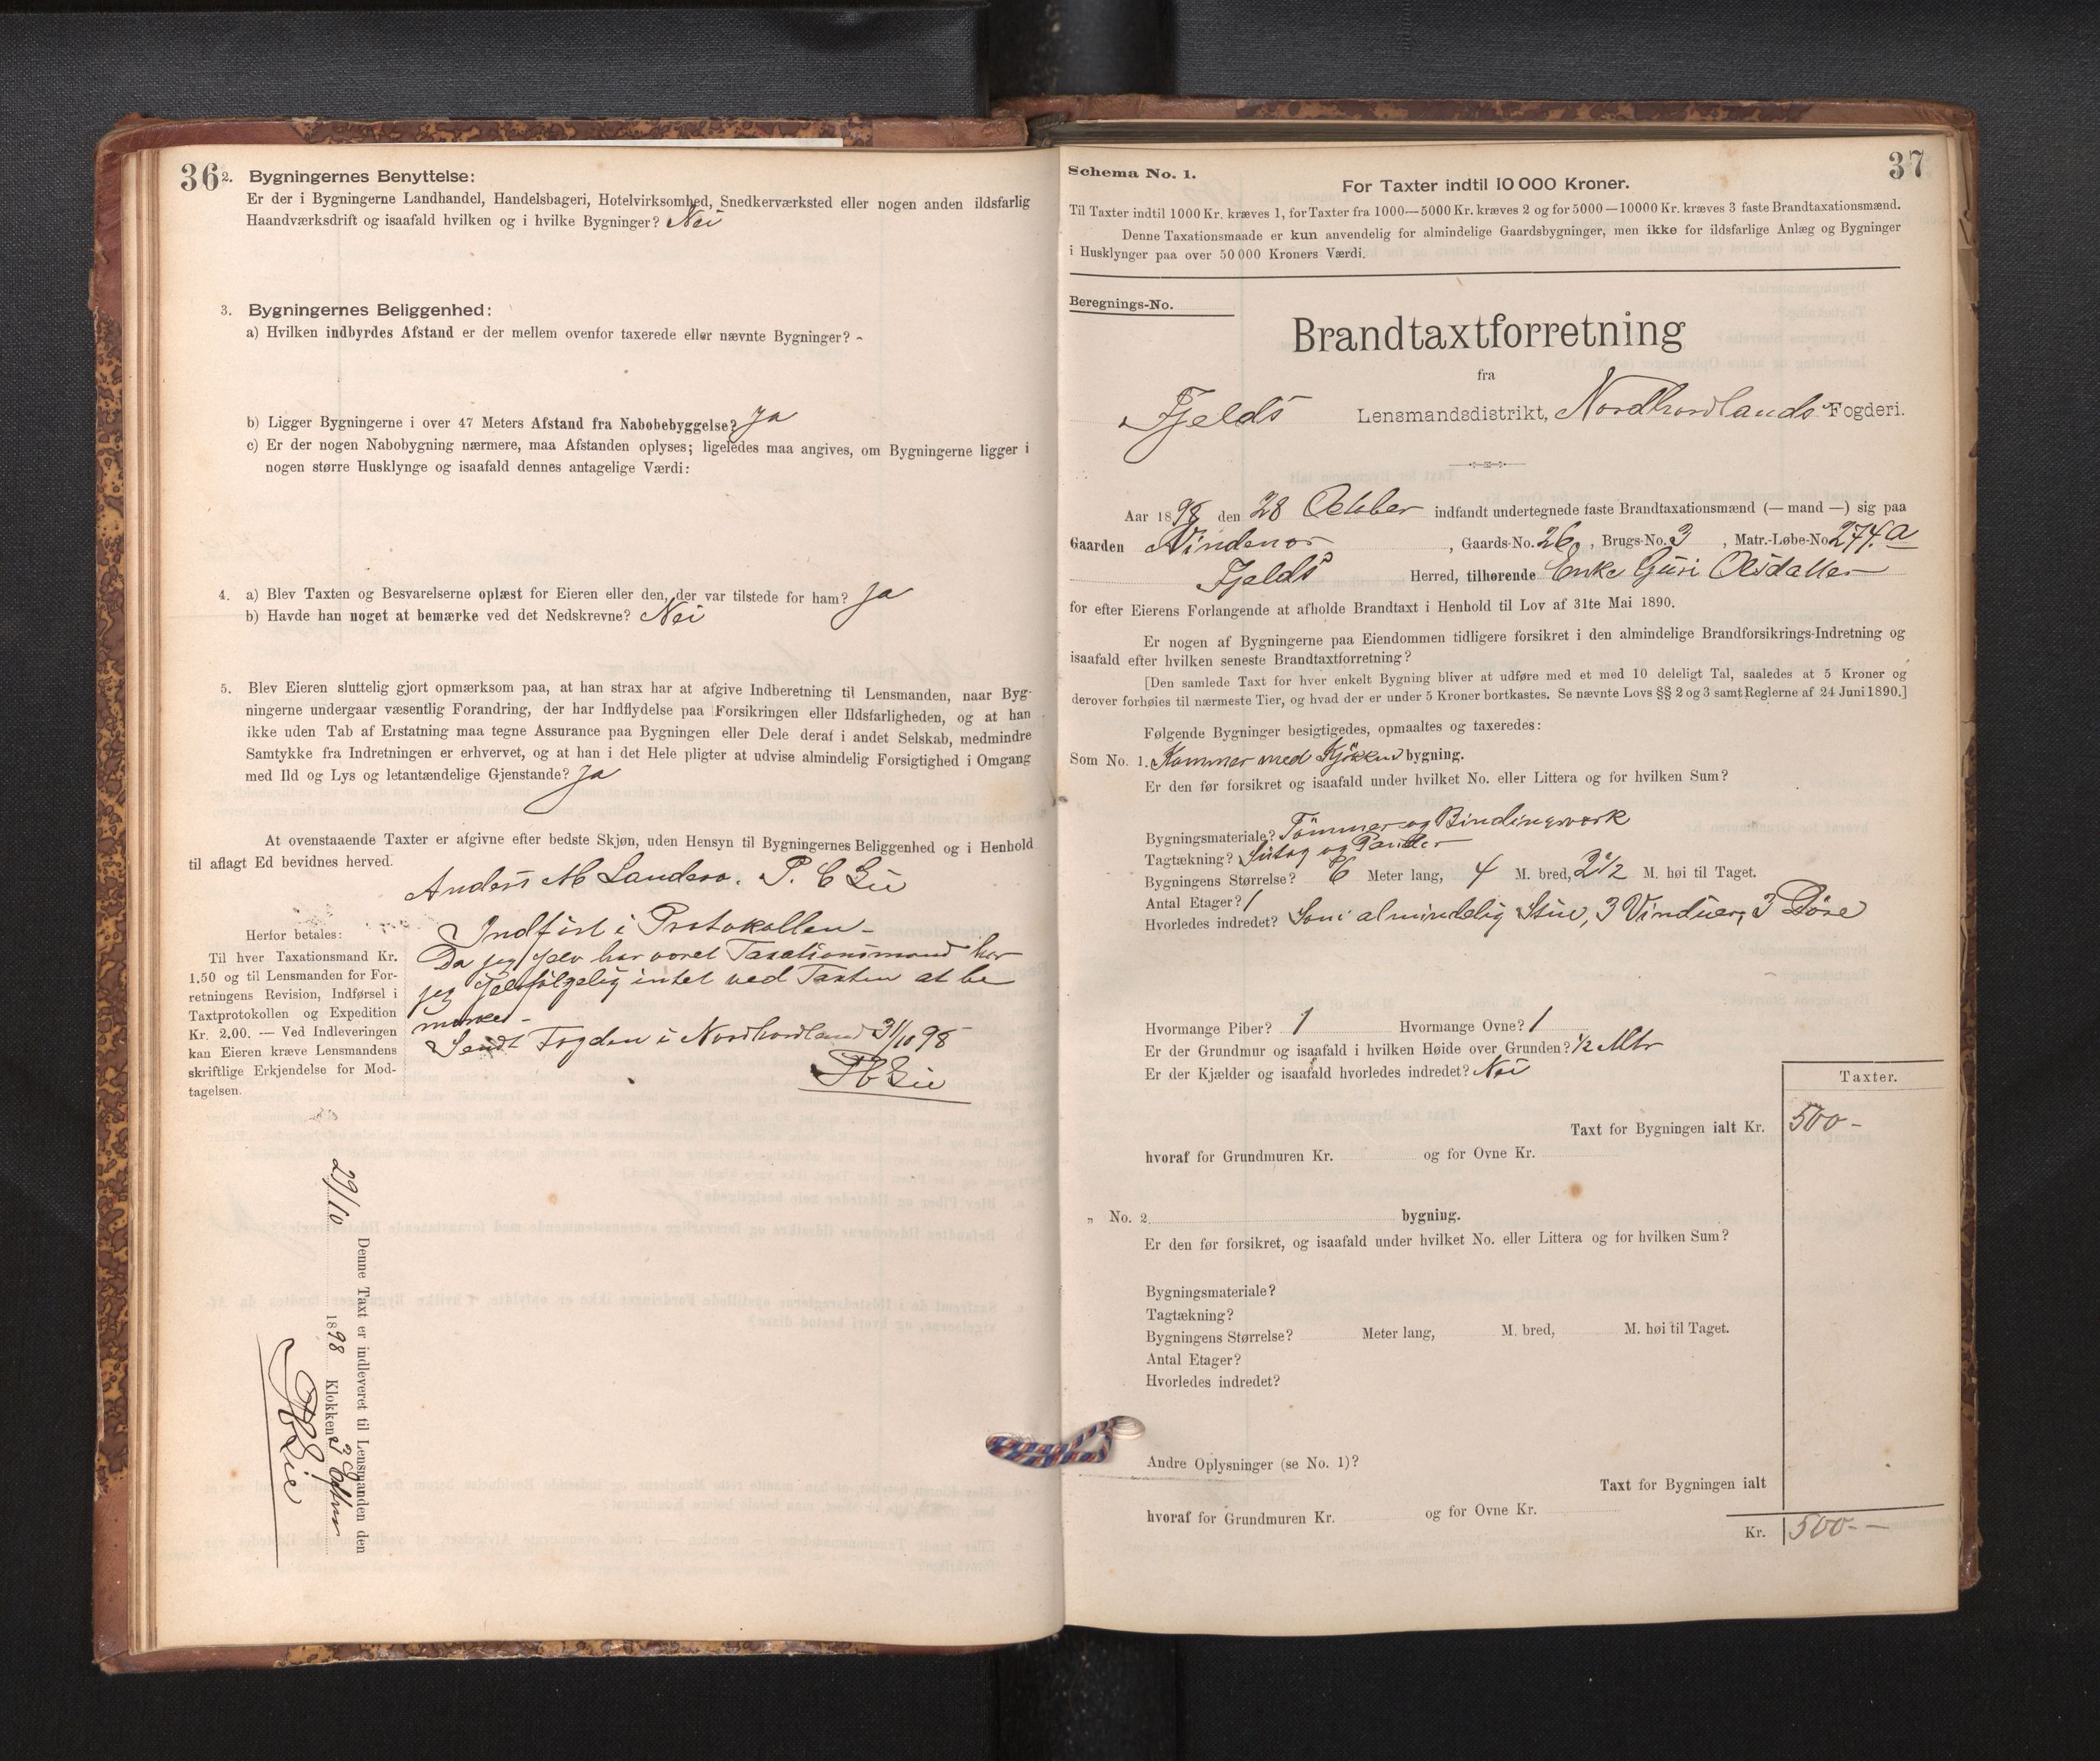 36
2. Bygningernes Benyttelse:
Er der i Bygningerne Landhandel, Handelsbageri, Hotelvirksomhed, Snedkerværksted eller nogen anden ildsfarlig
Haandværksdrift og isaafald hvilken og i hvilke Bygninger? Nei
3. Bygningernes Beliggenhed:
a) Hvilken indbyrdes Afstand er der mellem ovenfor taxerede eller nævnte Bygninger? -
b) Ligger Bygningerne i over 47 Meters Afstand fra Nabobebyggelse? Ja
c) Er der nogen Nabobygning nærmere, maa Afstanden oplyses; ligeledes maa angives, om Bygningerne ligger i
nogen større Husklynge og isaafald dennes antagelige Værdi:
4. a) Blev Taxten og Besvarelserne oplæst for Eieren eller den, der var tilstede for ham? Ja
b) Havde han noget at bemærke ved det Nedskrevne? Nei
5. Blev Eieren sluttelig gjort opmærksom paa, at han strax har at afgive Indberetning til Lensmanden, naar Byg-
ningerne undergaar væsentlig Forandring, der har Indflydelse paa Forsikringen eller Ildsfarligheden, og at han
ikke uden Tab af Erstatning maa tegne Assurance paa Bygningen eller Dele deraf i andet Selskab, medmindre
Samtykke fra Indretningen er erhvervet, og at han i det Hele pligter at udvise almindelig Forsigtighed i Omgang
med Ild og Lys og letantændelige Gjenstande? Ja
At ovenstaaende Taxter er afgivne efter bedste Skjøn, uden Hensyn til Bygningernes Beliggenhed og i Henhold
til aflagt Ed bevidnes herved.
Anders M Landero. P. C Gie
Herfor betales:
Til hver Taxationsmand Kr.
1.50 og til Lensmanden for For-
retningens Revision, Indførsel i
Taxtprotokollen og Expedition
Kr. 2.00. — Ved Indleveringen
kan Eieren kræve Lensmandens
skriftlige Erkjendelse for Mod-
tagelsen.
Indført i Protokollen -
Da jeg selv har været Taxationsmand har
jeg selvfølgelig intet ved Taxten at be
mærke -
Sendt Fogden i Nordhordland 31/10 98
P C Gie
Denne Taxt er indleveret til Lensmanden den
29/10 1898 Klokken 3 Eftm
P C Gie
37
Schema No. 1.
For Taxter indtil 10 000 Kroner.
Til Taxter indtil 1000 Kr. kræves 1, for Taxter fra 1000—5000 Kr. kræves 2 og for 5000—10000 Kr. kræves 3 faste Brandtaxationsmænd.
Denne Taxationsmaade er kun anvendelig for almindelige Gaardsbygninger, men ikke for ildsfarlige Anlæg og Bygninger
i Husklynger paa over 50 000 Kroners Værdi.
Beregnings-No.
Brandtaxtforretning
fra
Fjelds Lensmandsdistrikt, Nordhordlands Fogderi.
Aar 1898 den 28 October indfandt undertegnede faste Brandtaxationsmænd (— mand —) sig paa
Gaarden Vindenes, Gaards-No. 26, Brugs-No. 3, Matr.-Løbe-No. 274.a
Fjelds Herred, tilhørende Enke Guri Olsdatter
for efter Eierens Forlangende at afholde Brandtaxt i Henhold til Lov af 31te Mai 1890.
Er nogen af Bygningerne paa Eiendommen tidligere forsikret i den almindelige Brandforsikrings-Indretning og
isaafald efter hvilken seneste Brandtaxtforretning?
[Den samlede Taxt for hver enkelt Bygning bliver at udføre med et med 10 deleligt Tal, saaledes at 5 Kroner og
derover forhøies til nærmeste Tier, og hvad der er under 5 Kroner bortkastes. Se nævnte Lovs §§ 2 og 3 samt Reglerne af 24 Juni 1890.]
Følgende Bygninger besigtigedes, opmaaltes og taxeredes:
Som No. 1. Kammer med Kjøkken bygning.
Er den før forsikret og isaafald under hvilket No. eller Littera og for hvilken Sum?
Bygningsmateriale? Tømmer og Bindingsværk
Tagtækning? og Pander
Bygningens Størrelse? 6 Meter lang, 4 M. bred, 2 1/2 M. høi til Taget.
Antal Etager? 1
Hvorledes indredet? Som almindelig Stue, 3 Vinduer, 3 Døre
Hvormange Piber? 1 Hvormange Ovne? 1
Er der Grundmur og isaafald i hvilken Høide over Grunden? 1/2 Mtr
Er der Kjælder og isaafald hvorledes indredet? Nei
Taxter.
Taxt for Bygningen ialt Kr. 500 -
hvoraf for Grundmuren Kr. og for Ovne Kr.
„ No. 2. bygning.
Er den før forsikret, og isaafald under hvilket No. eller Littera og for hvilken Sum?
Bygningsmateriale?
Tagtækning?
Bygningens Størrelse? Meter lang, M. bred, M. høi til Taget.
Antal Etager?
Hvorledes indredet?
Andre Oplysninger (se No. 1)?
Taxt for Bygningen ialt
hvoraf for Grundmuren Kr. og for Ovne Kr.
Kr. 500 - -